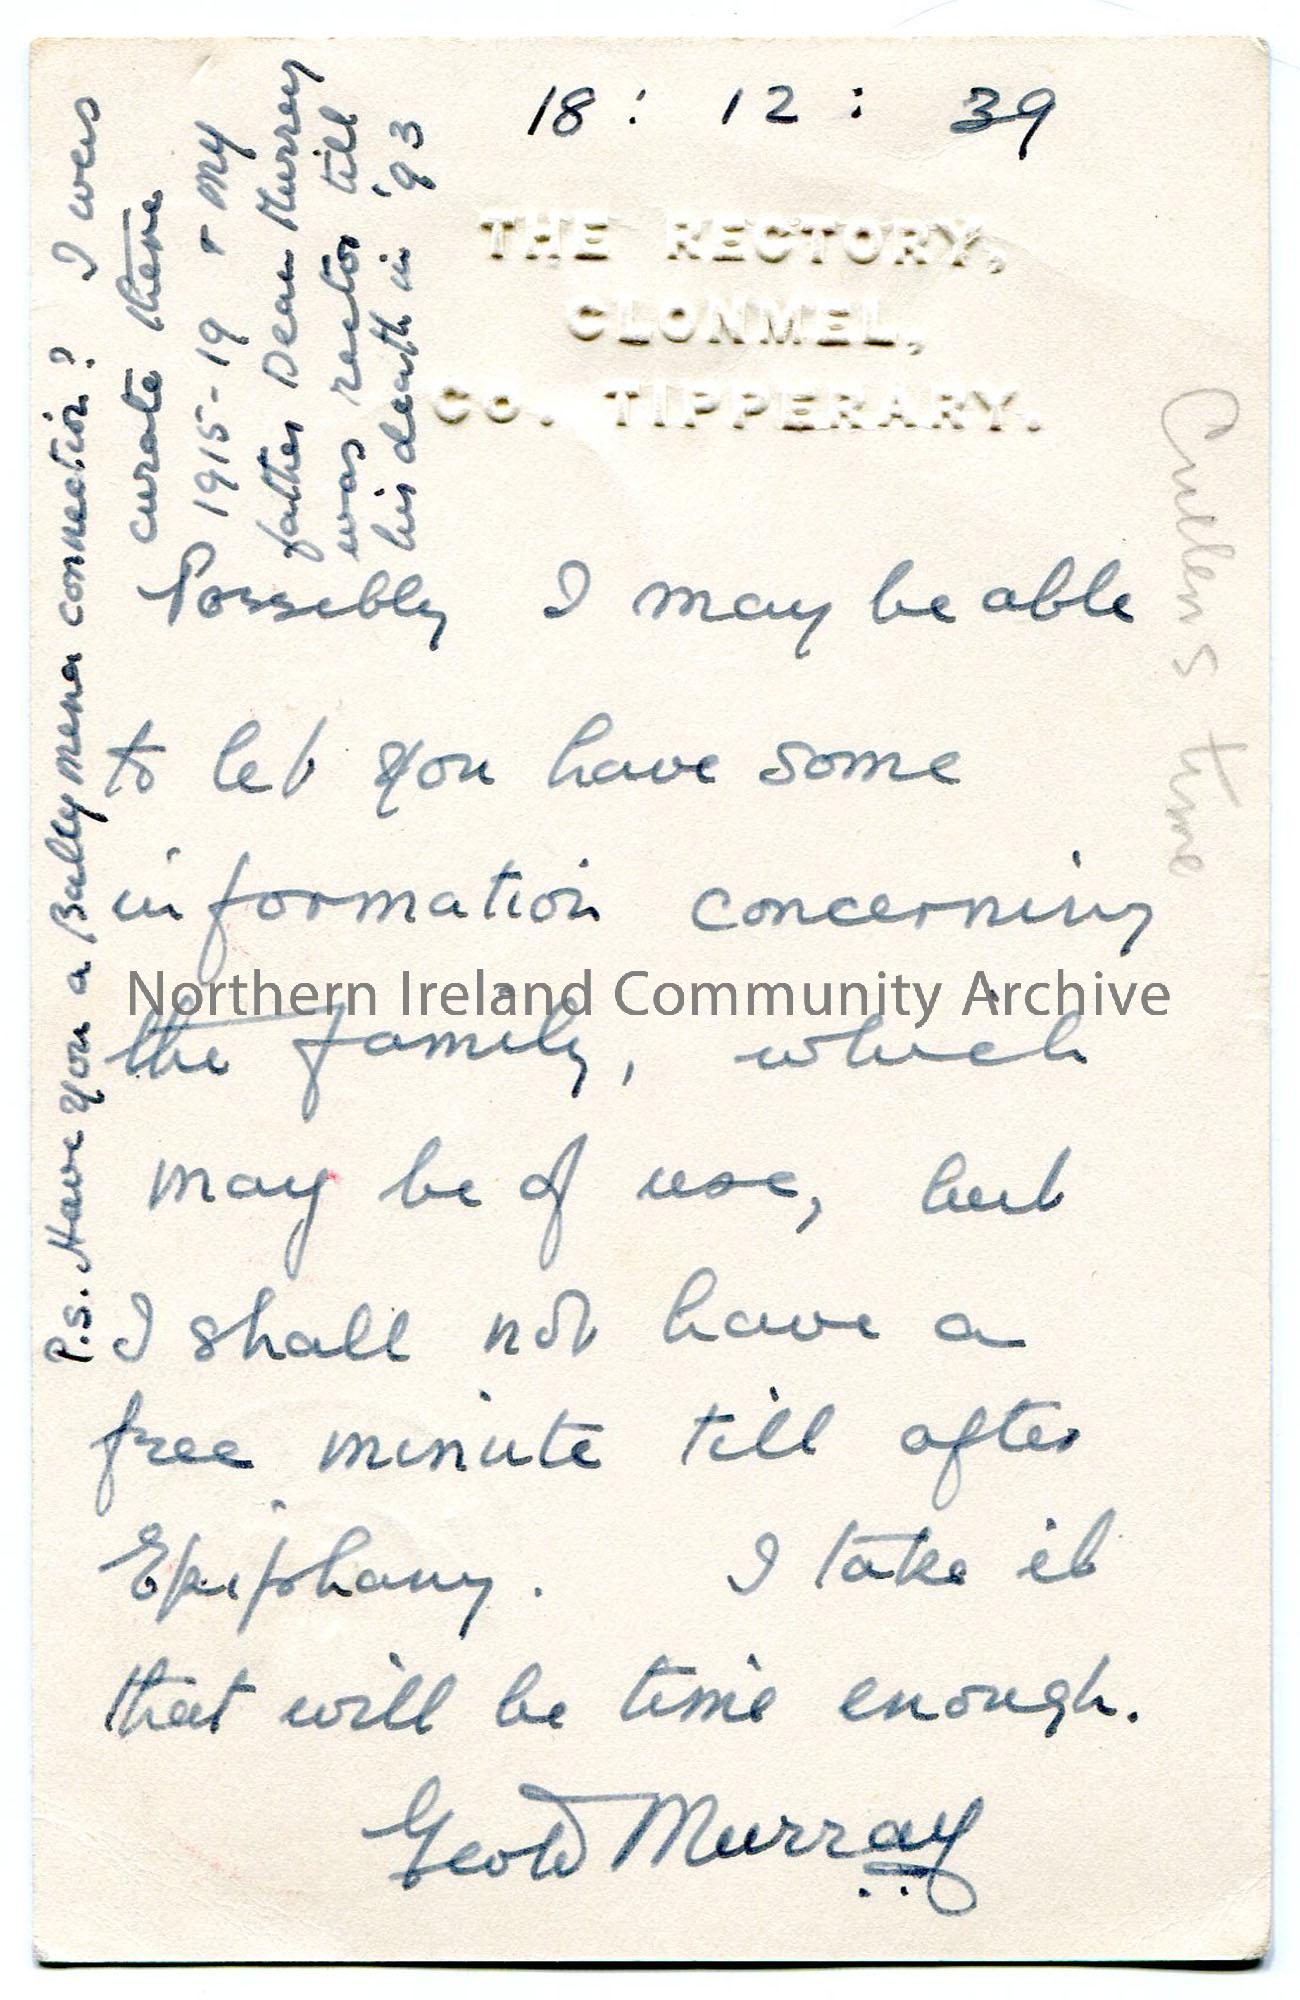 18 : 12 : 39
THE RECTORY,
CLONMEL,
CO. TIPPERARY.
Possibly I may be able
to let you have some
information concerning
the family, which
may be of use, but
I shall not have a
free minute till after
Epiphany. I take it
that will be time enough.
Murray
P.S. Have you a Ballymena connection? I was
curate there
1915-19 & my
father Dean Murray
was rector till
his death in '93
Cullen's time
Northern Ireland Community Archive